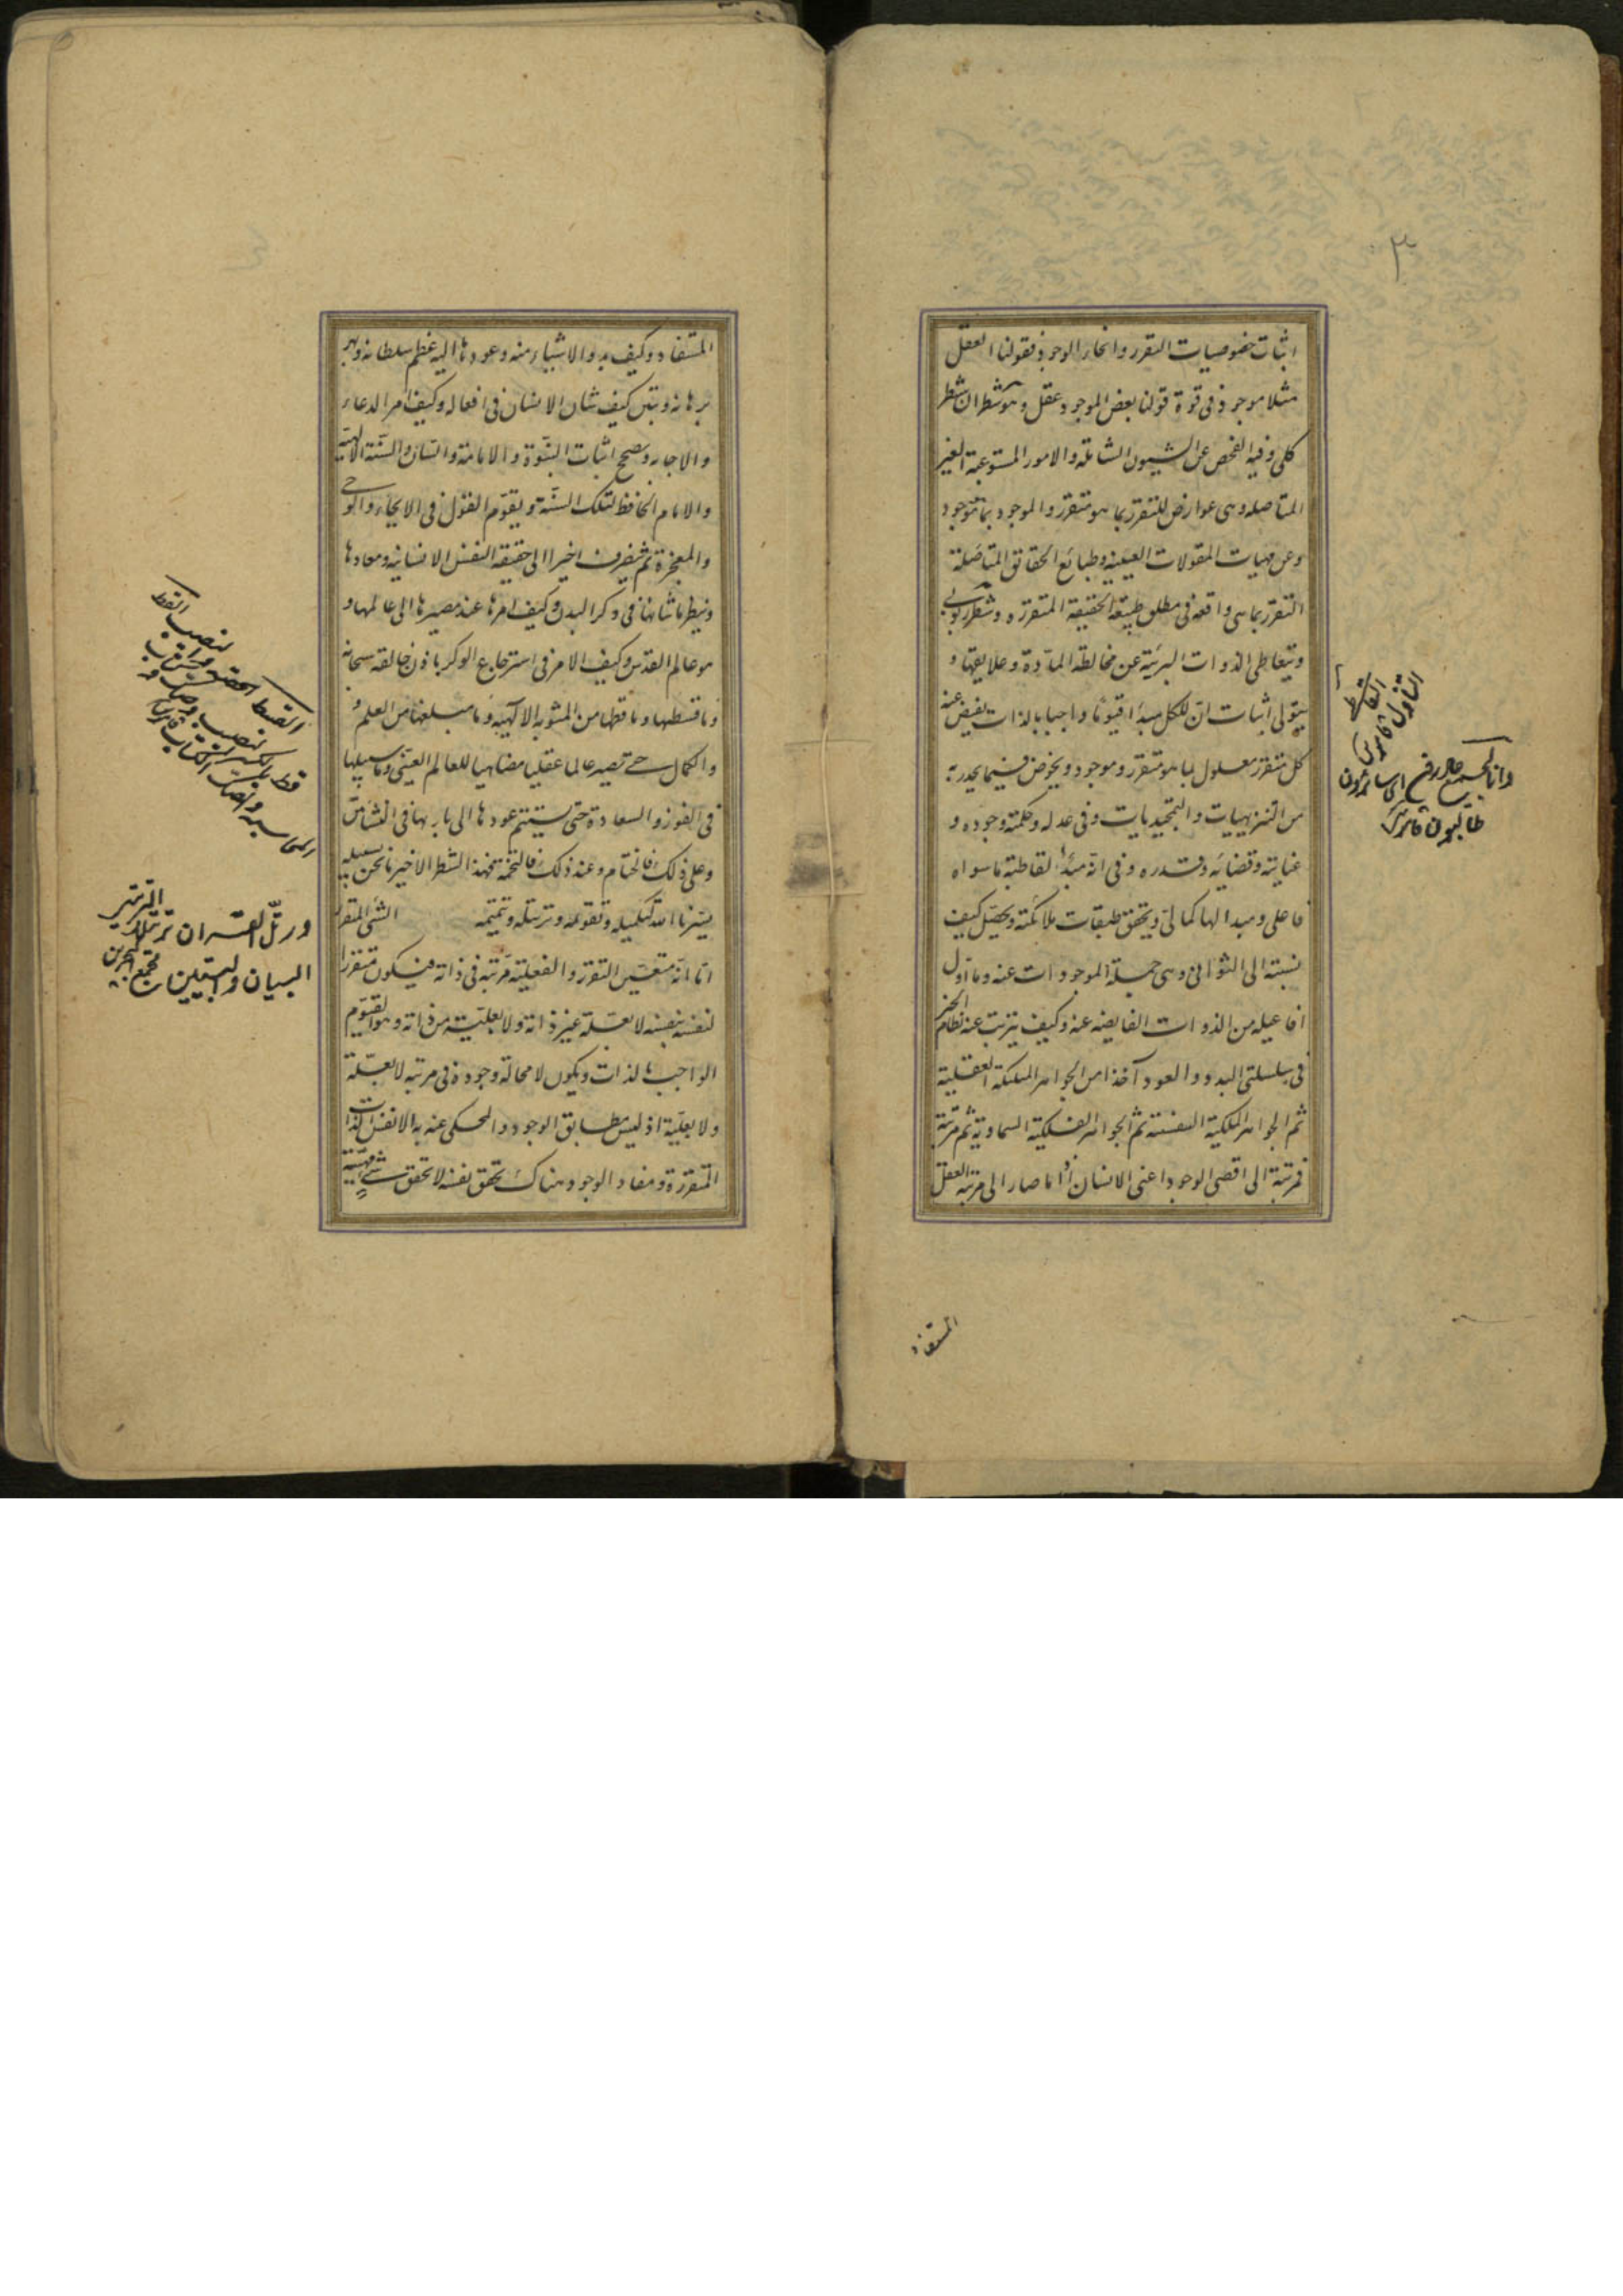 ٣
اثبات خصوصيات التقرر وانحاء الوجود فقولنا العقل
مثلا موجود فى قوة قولنا بعض الموجود عقل وهو شطران شطر
كلى وفيه الفحص عن الشيون الشاملة والامور المستوعبة الغير
المتاصله وهى عوارض للمتقرر بما هو متقرر والموجود بما هو موجود
وعن مهيات المقولات العينية وطبائع الحقائق المتاصلة
التقرر بما هى واقعه فى مطلق طبيعة الحقيقة المتقرره وشطر ربوبى
ويتعاطى الذوات البرئية عن مخالطة المادة وعلايقها و
يتولى اثبات ان للكل مبدأ قيوما واجبا بالذات يفيض عنه
كل متقرر معلول بما هو متقرر وموجود ويخوض فيما يجدر به
من التنزيهيات والتمجيديات وفى عدله وحكمته وجوده و
عنايته وقضائه وقدره وفى انه مبدأ لقاطبة ما سواه
فاعلى ومبدا لها كمالى ويحقق طبقات ملائكته ويحصل كيف
نسبته الى الثوانى وهى جملة الموجودات عنه وما اول
افاعيله من الذوات الفايضه عنه وكيف يترتب عنه نظام الخير
فى سلسلتى البدو والعود آخذا من الجواهر الملكية العقلية
ثم الجواهر الملكية النفسية ثم الجواهر الفلكية السماوية ثم مرتبة
فمرتبة الى اقصى الوجود اعنى الانسان اذا ما صار الى مرتبة العقل
التناول قاموس
وانا لجميع حاذرون اى
طالبون قاموس
المستفاد
المستفاد وكيف بدو الاشياء منه وعودها اليه عظم سلطانه وبهر
برهانه ويبين كيف شان الانسان فى افعاله وكيف امر الدعاء
والاجابه ويصحح اثبات النبوة والامامة والسان والسنة الالهية
والامام الحافظ لتلك السنة ويقوم القول فى الايحاء والوحى
والمعجزة ثم ينصرف اخيرا الى حقيقة النفس الانسانيه ومعادها
وينظر ما شانها فى وكر البدن وكيف امرها عند مصيرها الى عالمها و
هو عالم القدس وكيف الامر فى استرجاع الوكر باذن خالقه سبحانه
وما قسطها وما قطها من المثوبه الالهية وما مبلغها من العلم و
والكمال حتى تصير عالما عقليا مضاهيا للعالم العينى وما سبيلها
فى الفوز والسعادة حتى يستتم عودها الى باريها فى النشأتين
وعلى ذلك فالختام وعند ذلك فالتختمة فهذا الشطر الاخير ما نحن بسبيله
يسرنا الله لتكميله وتقويمه وترتيله وتتميمه الشى المتقرر
اما انه متعين التقرر والفعلية مرتبة فى ذاته فيكون متقررا
لنفسه بنفسه لا بعلة غير ذاته ولا بعلية من ذاته وهو القيوم
الواجب بالذات ويكون لا محالة وجوده فى مرتبه لا بعلة
ولا بعلية اذ ليس مطابق الوجود والمحكى عنه به الا نفس الذات
المتقررة ومفاد الوجود هناك تحقق نفسه لا تحقق شئ
القسط الحصة والنصيب القط
قط بالكسر نصيب وصك
ورتل القران ترتيلا الترتيل
البيان والتبيين مجمع البحرين